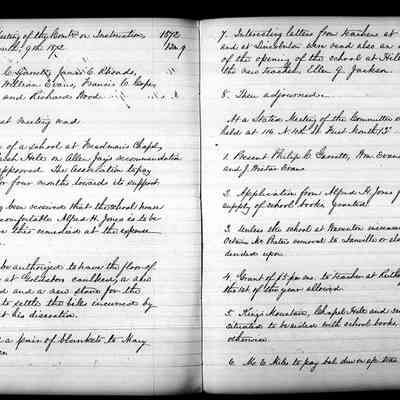 Meeting of the Comte on Instruction 1872
9th 1872 12m 9
C. Garrett, James E. Rhoads,
William Evans, Francis C. Cope,
and Richard Wood
last meeting read
of a school at Freedman's Chapel,
Allen Jay's recommendation
approved. The Association to pay
for four months towards its support.
been received that the school house
comfortable Alfred H. Jones is to be
this remedied at the expense
be authorized to have the floor of
at Goldston caulked, a new
and a new stove for the
to settle the bills incurred by
at his discretion.
a pair of blankets to Mary
7. Interesting letters from teachers at
and at Lincolnton were read also an
of the opening of the school at Hill
the new teacher, Ellen J. Jackson.
8. Then adjourned.
At a Stated Meeting of the Committee
held at 116 N. 4th St First Month 12th
1. Present Philip C. Garrett, Wm. Evans
and J. Wistar Evans.
2. Application from Alfred H. Jones for
supply of school books granted.
3. Unless the school at Warrenton increases
removal to Danville or
decided upon.
4. Grant of $5 per mo. to teacher at
the 1st of the year allowed.
5. King's Mountain, Chapel Hill and
situated to be aided with school books,
otherwise.
6. to pay bal. due on